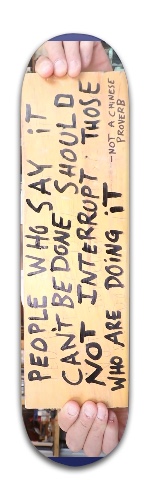 PEOPLE WHO SAY iT
CAN'T BE DONE SHOULD
NOT INTERRUPT THOSE
WHO ARE DOiNG iT
-NOT A CHINESE
PROVERB